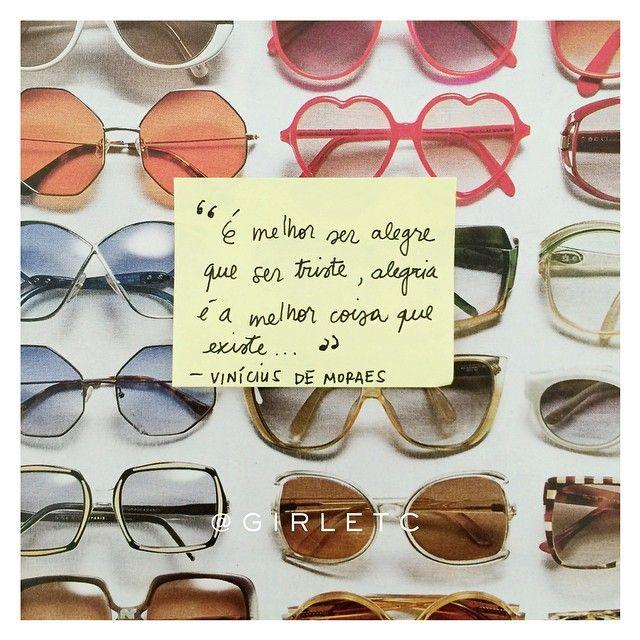 “É melhor ser alegre
que ser triste, alegria
é a melhor coisa que
existe... ”
— VINÍCIUS DE MORAES
@GIRLETC